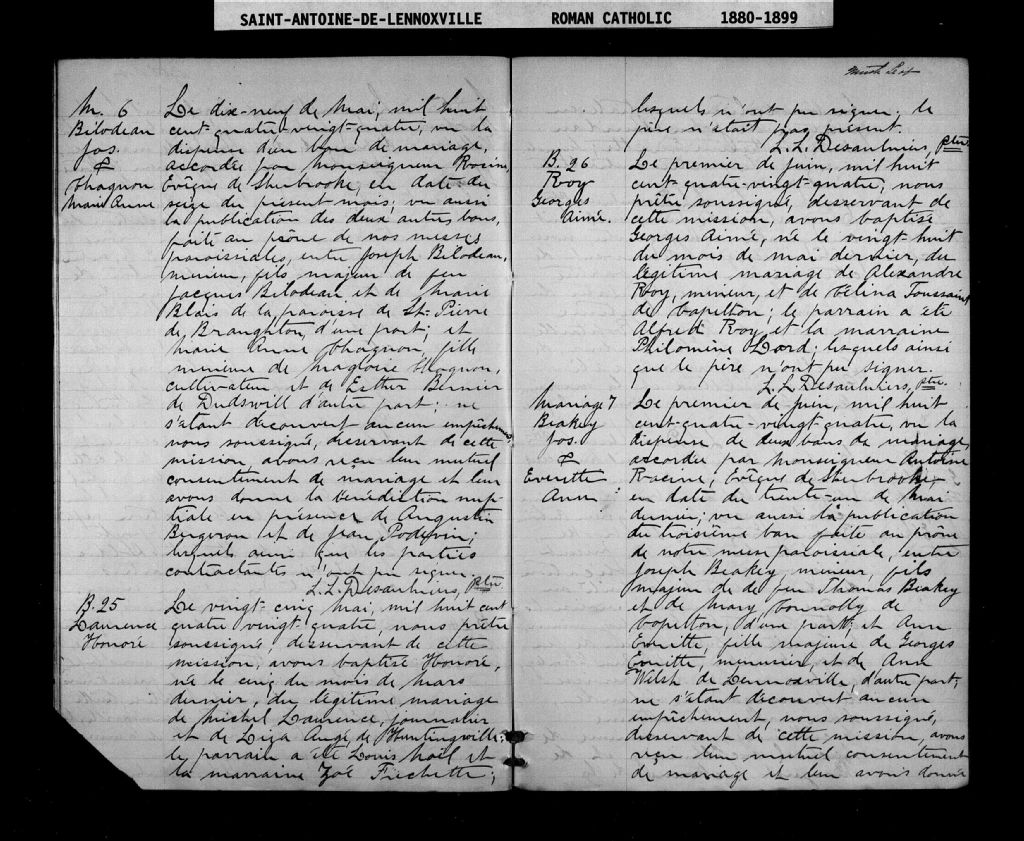 SAINT-ANTOINE-DE-LENNOXVILLE ROMAN CATHOLIC 1880-1899
M. 6
Bilodeau
Jos.
&
Chagnon
Marie Anne
Le dix-neuf de Mai, mil huit
cent-quatre-vingt-quatre, vu la
dispense d'un ban de mariage,
accordée par Monseigneur Racine,
Evêque de Sherbrooke, en date du
seize du présent mois; vu aussi
la publication des deux autres bans,
faite au prône de nos messes
paroissiales, entre Joseph Bilodeau,
mineur, fils majeur de feu
Jacques Bilodeau et de Marie
Blais de la paroisse de St-Pierre
de Broughton, d'une part; et
Marie Anne Chagnon, fille
mineure de Magloire Chagnon,
cultivateur et de Esther Bernier
de Dudswill d'autre part; ne
s'étant découvert aucun empêchement,
nous soussigné, desservant de cette
mission avons reçu leur mutuel
consentement de mariage et leur
avons donné la bénédiction nup-
tiale en présence de Augustin
Bergeron et de Jean Poderin;
lesquels ainsi que les parties
contractantes n'ont pu signer.
L. Z. Desaulniers, ptre
B. 25
Laurence
Honoré
Le vingt-cinq Mai, mil huit cent
quatre vingt-quatre, nous prêtre
soussigné, desservant de cette
mission, avons baptisé Honoré,
né le cinq du mois de Mars
dernier, du légitime mariage
de Michel Laurence, journalier
et de Liza Angé, de Huntingville;
le parrain a été Louis Noël et
la marraine Zoé Frechette;
lesquels n'ont pu signer; le
père n'était pas présent.
L. Z. Desaulniers, ptre.
B. 26
Roy
Georges
Aimé.
Le premier de Juin, mil huit
cent-quatre-vingt-quatre, nous
prêtre soussigné, desservant de
cette mission, avons baptisé
Georges Aimé, né le vingt-huit
du mois de mai dernier, du
légitime mariage de Alexandre
Roy, mineur, et de Célina Toussaint
de Capelton; le parrain a été
Alfred Roy et la marraine
Philomène Lord; lesquels ainsi
que le père n'ont pu signer.
L. Z. Desaulniers, ptre.
Mariage 7
Beakey
Jos.
&
Everitte
Ann
Le premier de Juin, mil huit
cent-quatre-vingt-quatre, vu la
dispense de deux bans de mariage,
accordée par Monseigneur Antoine
Racine, Evêque de Sherbrooke,
en date du trente-un de Mai
dernier; vu aussi la publication
du troisième ban faite au prône
de notre messe paroissiale, entre
Joseph Beakey, mineur, fils
majeur de feu Thomas Beakey
et de Mary Connolly de
Capelton, d'une part; et Ann
Everitte, fille majeure de Georges
Everitte, menuisier, et de Ann
Welsh de Lennoxville, d'autre part;
ne s'étant découvert aucun
empêchement, nous soussigné,
desservant de cette mission, avons
reçu leur mutuel consentement
de mariage et leur avons donné